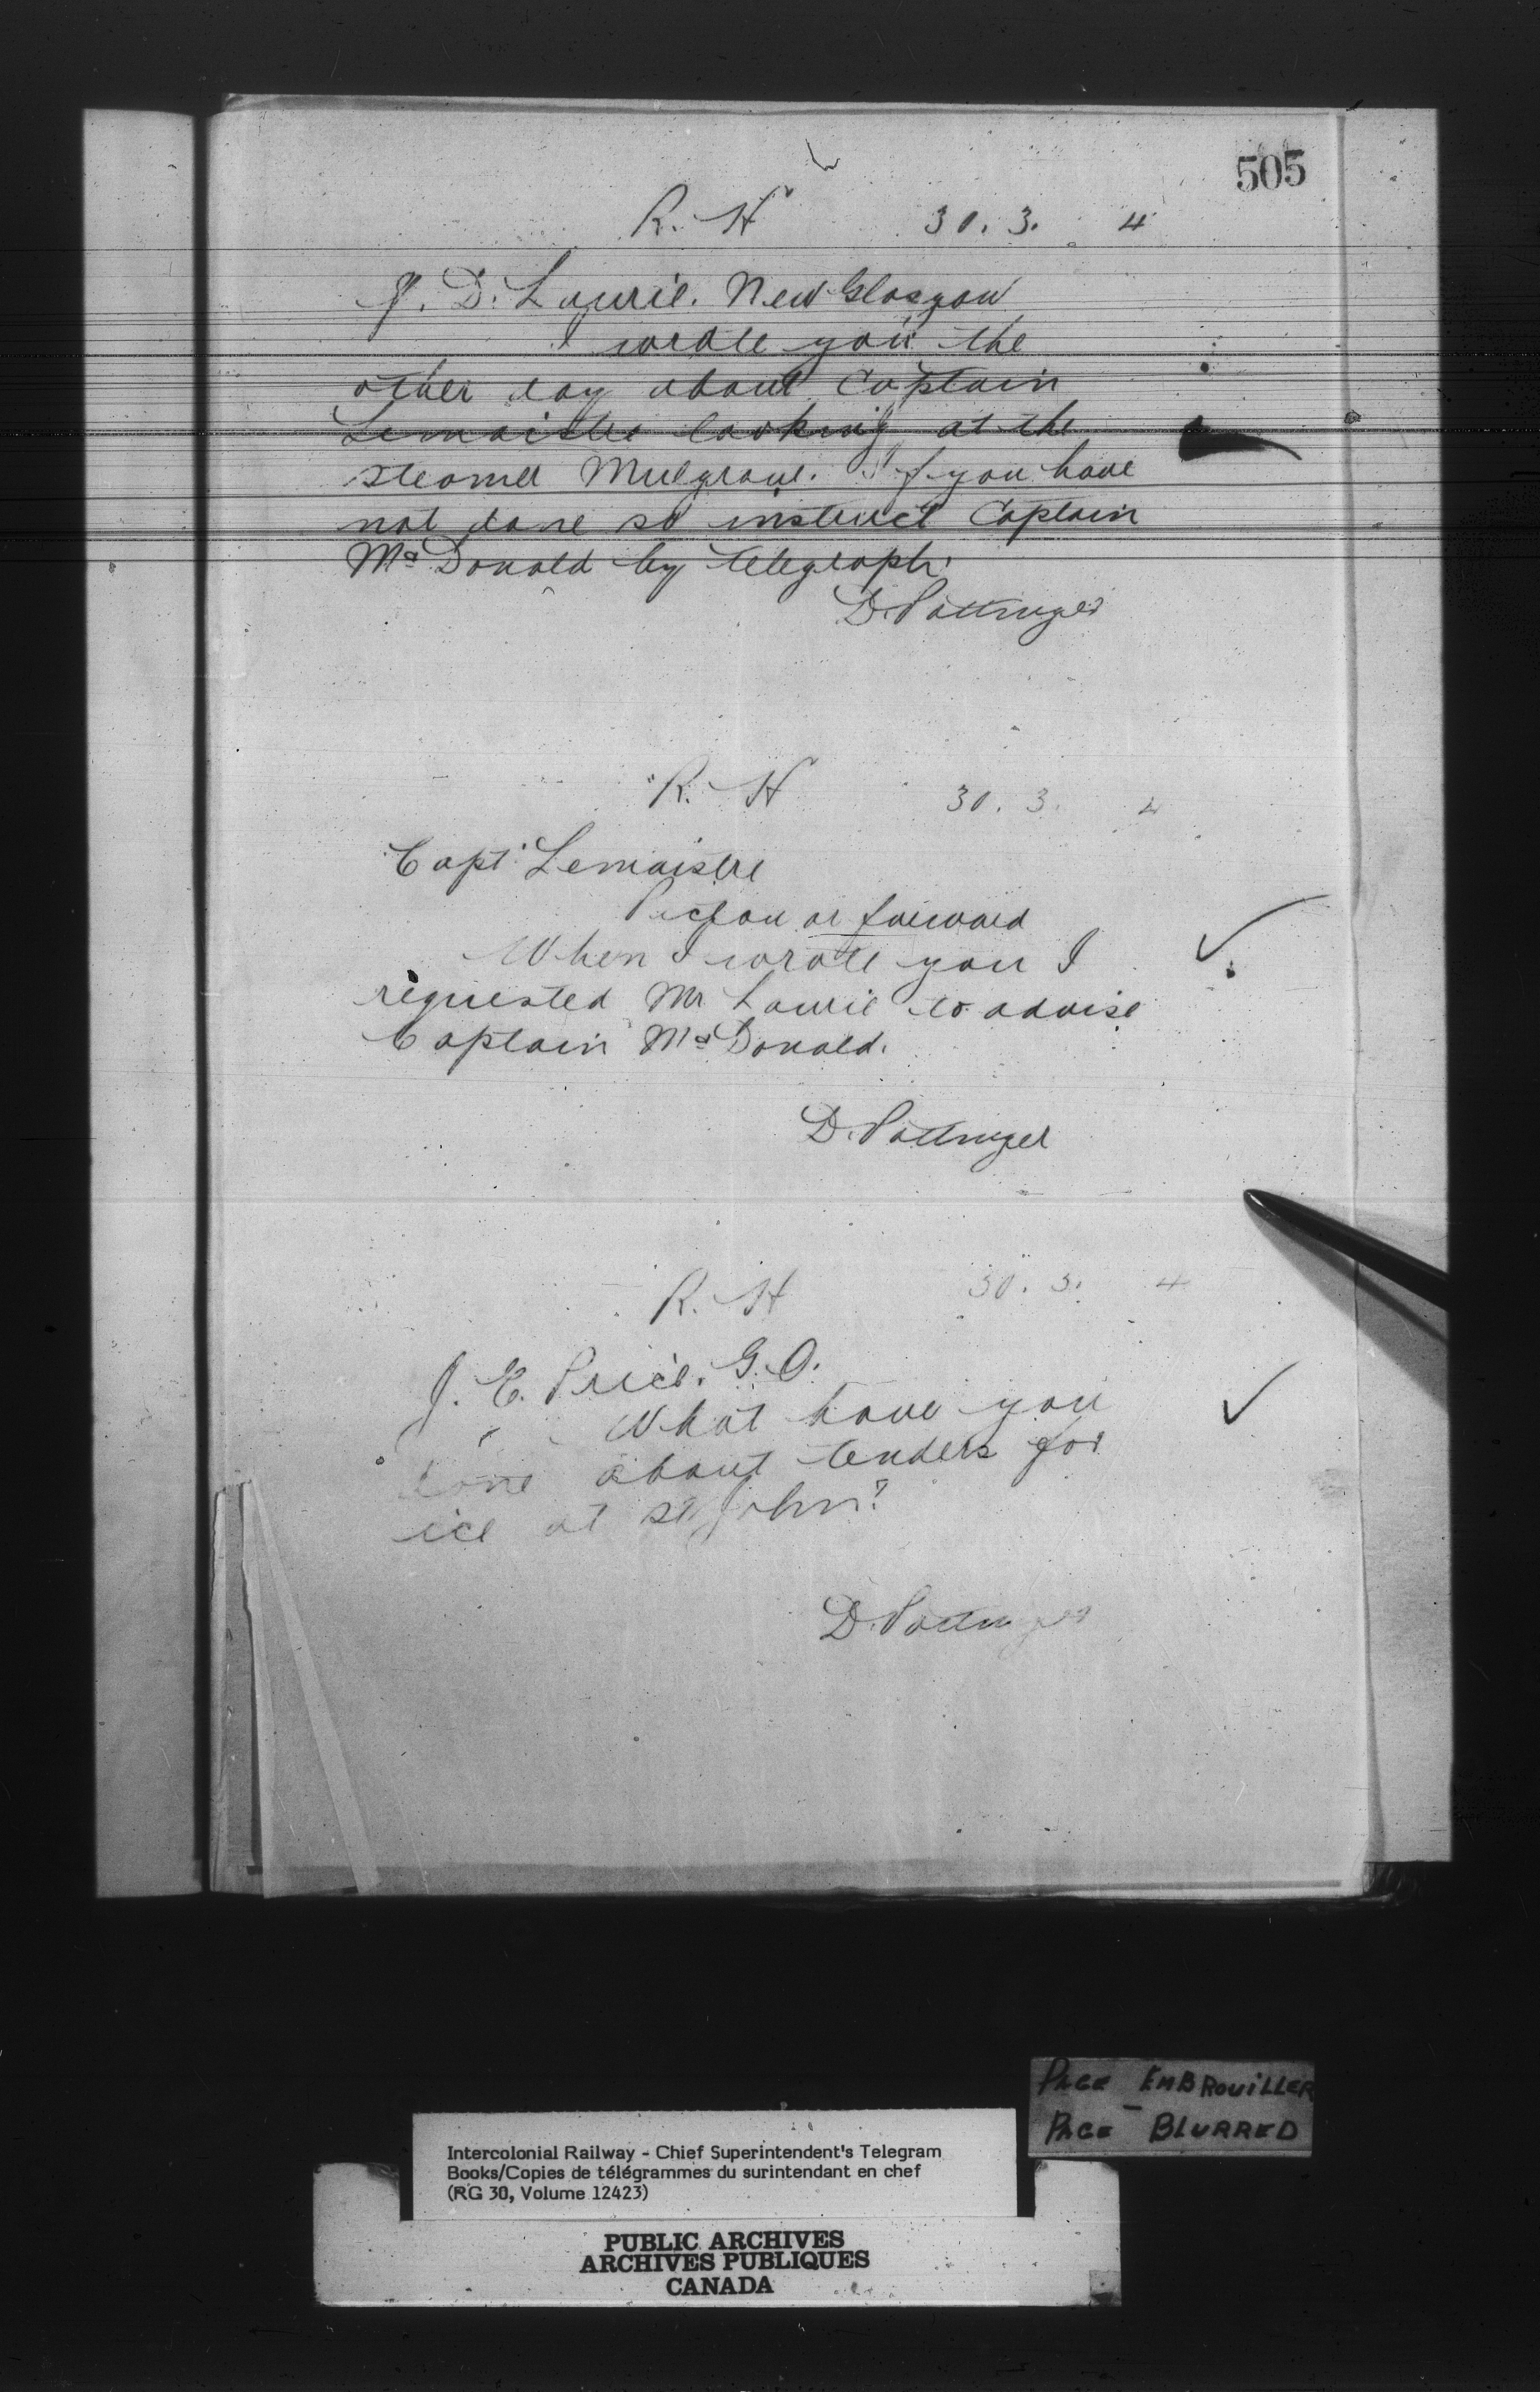 505
R. H 30. 3. 4
J. D. Laurie. New Glasgow
I wrote you the
other day about Captain
Lemaistre looking at the
steamer Mulgrave. If you have
not done so instruct Captain
McDonald by telegraph.
D. Pottinger
R. H 30. 3. 4
Capt Lemaistre
Pictou or forward
When I wrote you I
requested Mr Laurie to advise
Captain McDonald.
D. Pottinger
R. H 30. 3. 4
J. E. Price. G. O.
What have you
done about tenders for
ice at St John?
D. Pottinger
PAGE EMBROUILLER
PAGE BLURRED
Intercolonial Railway - Chief Superintendent's Telegram
Books/Copies de télégrammes du surintendant en chef
(RG 30, Volume 12423)
PUBLIC ARCHIVES
ARCHIVES PUBLIQUES
CANADA